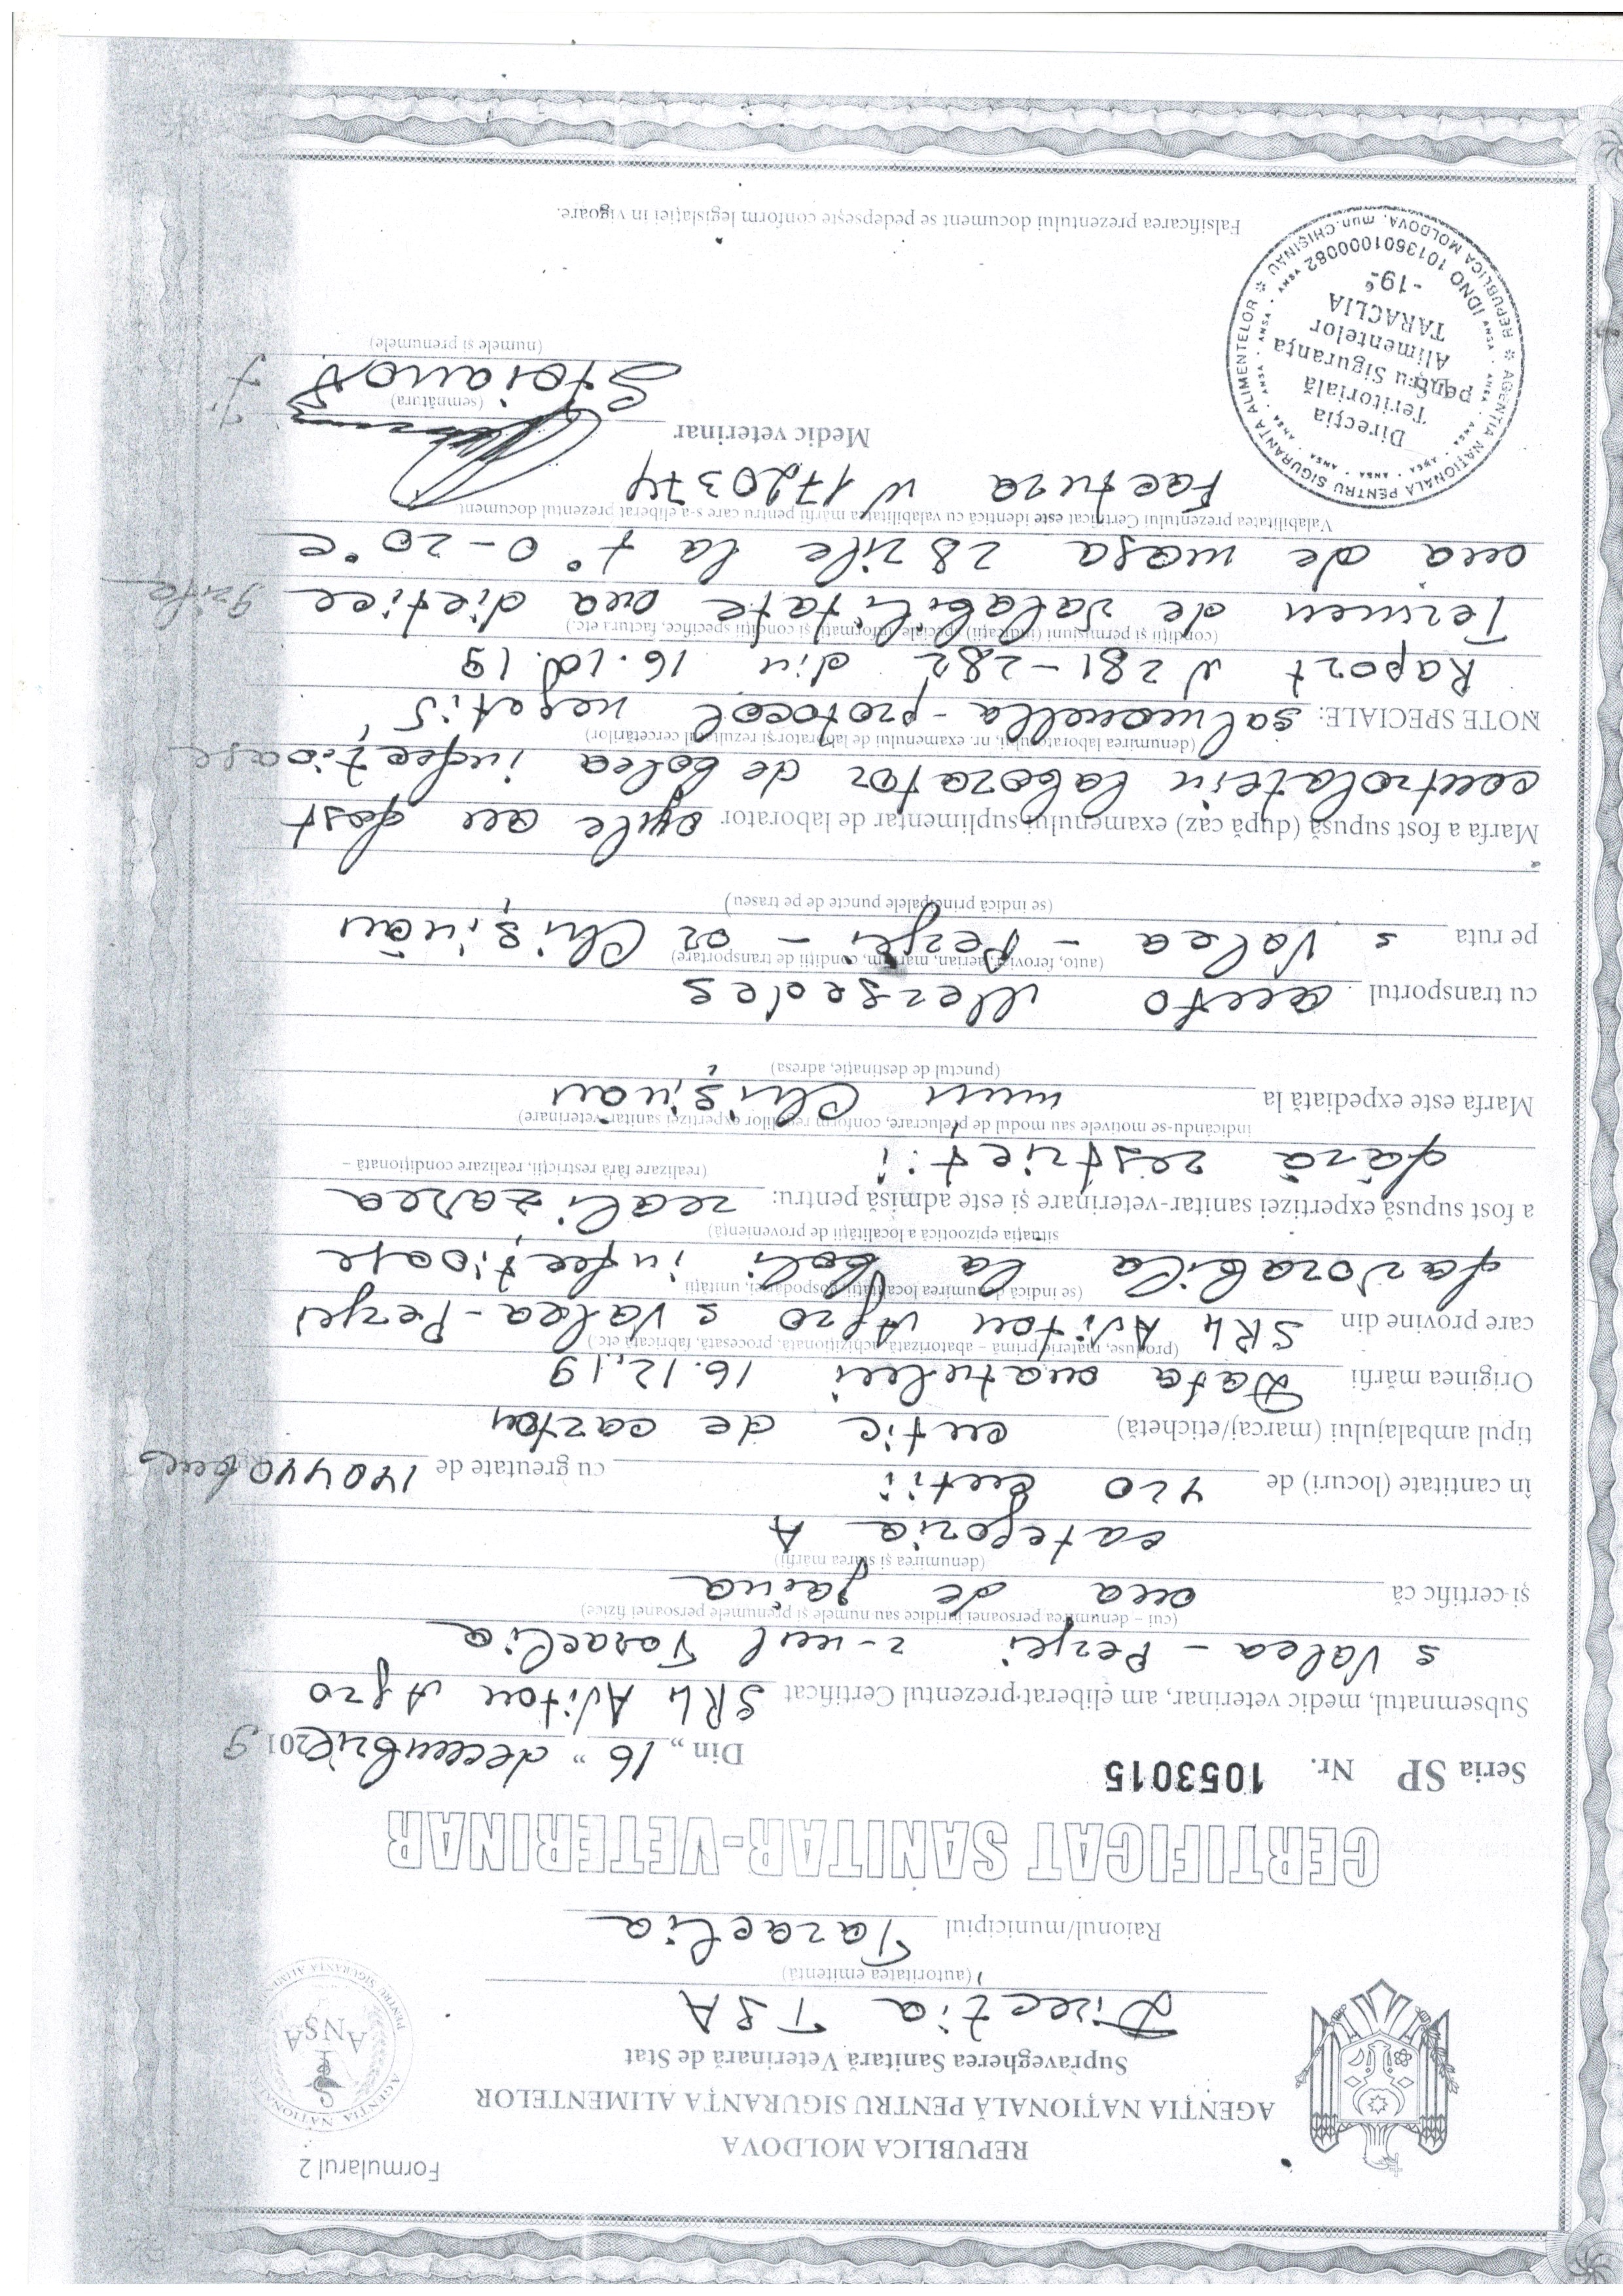 Formularul 2
REPUBLICA MOLDOVA
AGENȚIA NAȚIONALĂ PENTRU SIGURANȚA ALIMENTELOR
Supravegherea Sanitară Veterinară de Stat
ANSA
Direcția TSA
(autoritatea emitentă)
Raionul/municipiul Taraclia
CERTIFICAT SANITAR-VETERINAR
Seria SP Nr. 1053015 Din „ 16 " decembrie 2019
Subsemnatul, medic veterinar, am eliberat prezentul Certificat SRL Aviton Agro
s Valea - Perjei r-nul Taraclia
(cui – denumirea persoanei juridice sau numele și prenumele persoanei fizice)
și certific că oua de gaina
(denumirea și starea mărfii)
categoria A
în cantitate (locuri) de cutii cu greutate de
tipul ambalajului (marcaj/etichetă) cutie de carton
Originea mărfii Data ouatului 16.12.19
(produse, materie primă – abatorizată, achiziționată, procesată, fabricată etc.)
care provine din SRL Aviton Agro s Valea-Perjei
(se indică denumirea localității, gospodăriei, unității
favorabila la boli infecțioase
situația epizootică a localității de proveniență)
a fost supusă expertizei sanitar-veterinare și este admisă pentru: realizarea
(realizare fără restricții, realizare condiționată –
fără restricții
indicându-se motivele sau modul de prelucrare, conform regulilor expertizei sanitar-veterinare)
Marfa este expediată la mun Chișinău
(punctul de destinație, adresa)
cu transportul auto Mersedes
(auto, feroviar, aerian, maritim, condiții de transportare)
pe ruta s Valea - Perjei - or Chișinău
(se indică principalele puncte de pe traseu)
Marfa a fost supusă (după caz) examenului suplimentar de laborator au fost
controlate in laborator de bolea infecțioase
(denumirea laboratorului, nr. examenului de laborator și rezultatul cercetărilor)
NOTE SPECIALE: salmonella - protocol negativ
Raport N 281-282 din 16.
(condiții și permisiuni (indicații) speciale, informații și condiții specifice, factura etc.)
Termen de valabilitate oua dietice 9 zile
oua de masa 28 zile la t° 0-20°C
Valabilitatea prezentului Certificat este identică cu valabilitatea mărfii pentru care s-a eliberat prezentul document.
Factura N 1720374
Medic veterinar
(semnătura)
Stoianov
(numele și prenumele)
AGENȚIA NAȚIONALĂ PENTRU SIGURANȚA ALIMENTELOR
REPUBLICA MOLDOVA, mun. CHIȘINĂU
IDNO 1013601000082
Direcția
Teritorială
pentru Siguranța
Alimentelor
TARACLIA
-19-
Falsificarea prezentului document se pedepsește conform legislației în vigoare.